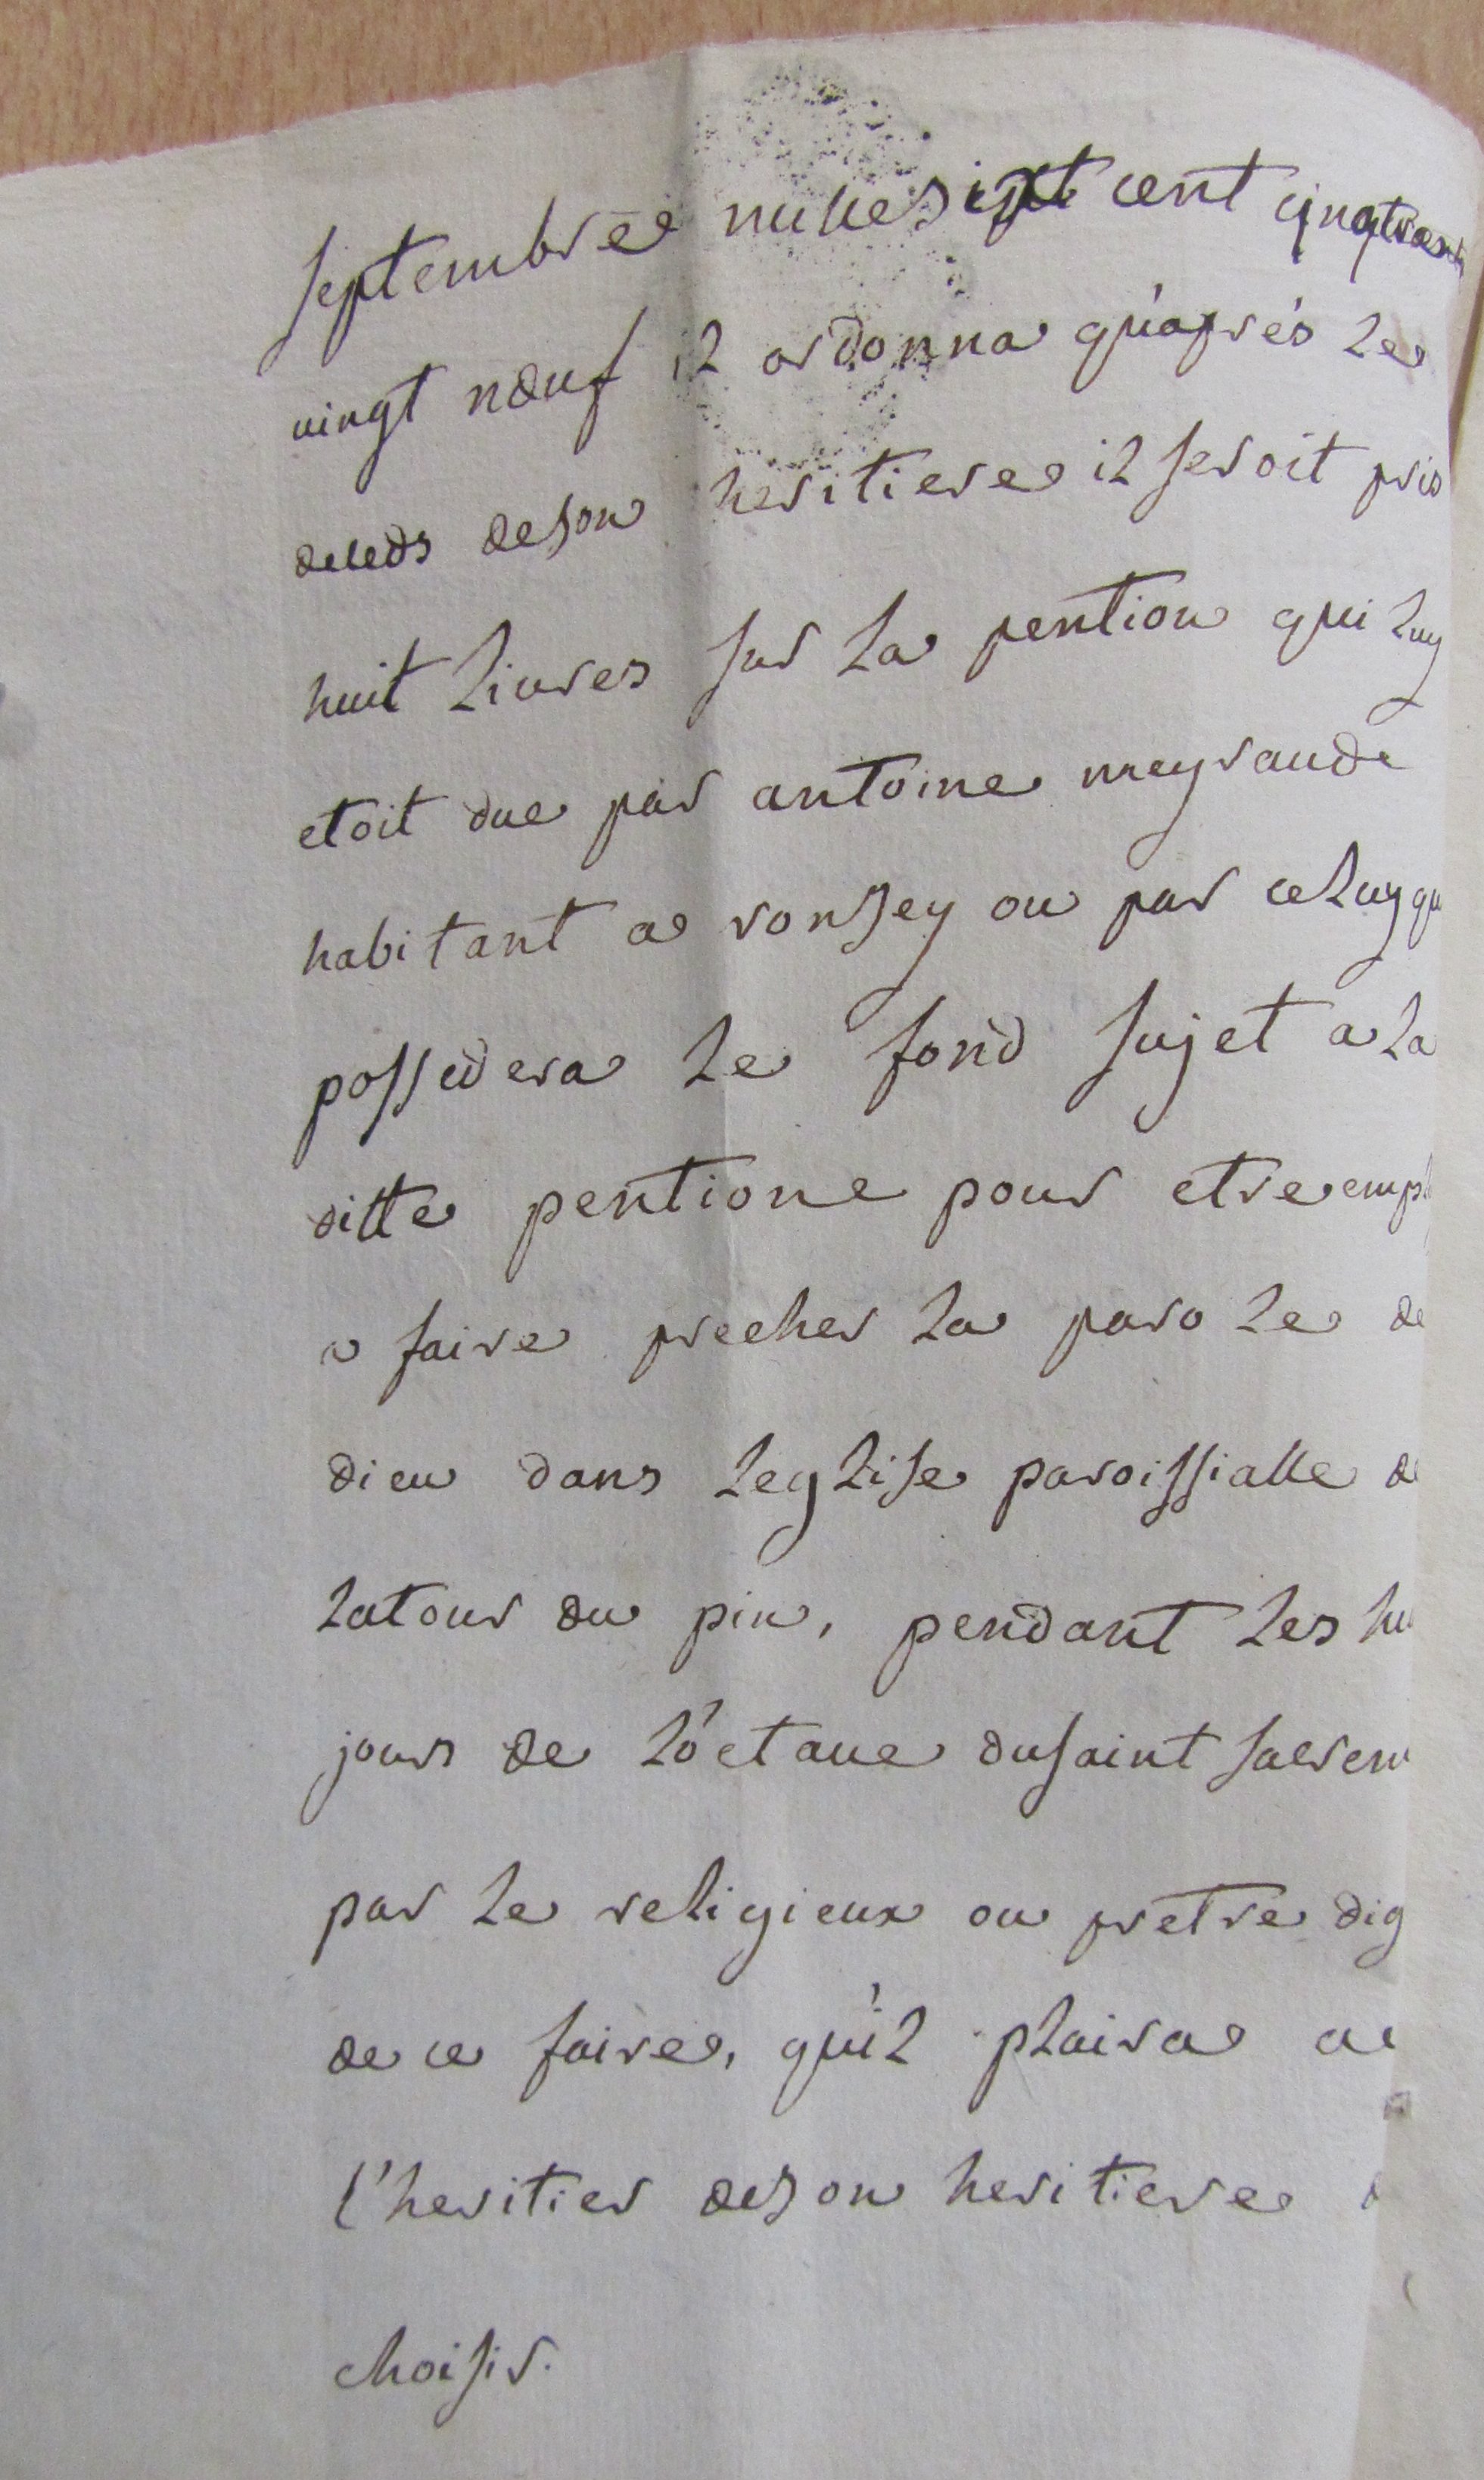 septembre mille sixt cent
vingt nœuf il ordonna qu'aprés le
deceds deson heritiere il seroit pris
huit livres sur la pention qui luy
etoit due par antoine meyraude
habitant a ronsey ou par celuy qu
possedera le fond sujet a la
ditte pentione pour etre emp
a faire precher la parole de
dieu dans leglise paroissialle de
latour du pin, pendant les hu
jours de l'óctave dusaint sacrem
par le religieux ou pretre dig
de ce faire, qu'il plaira a
l'heritier deson heritiere d
choisir.